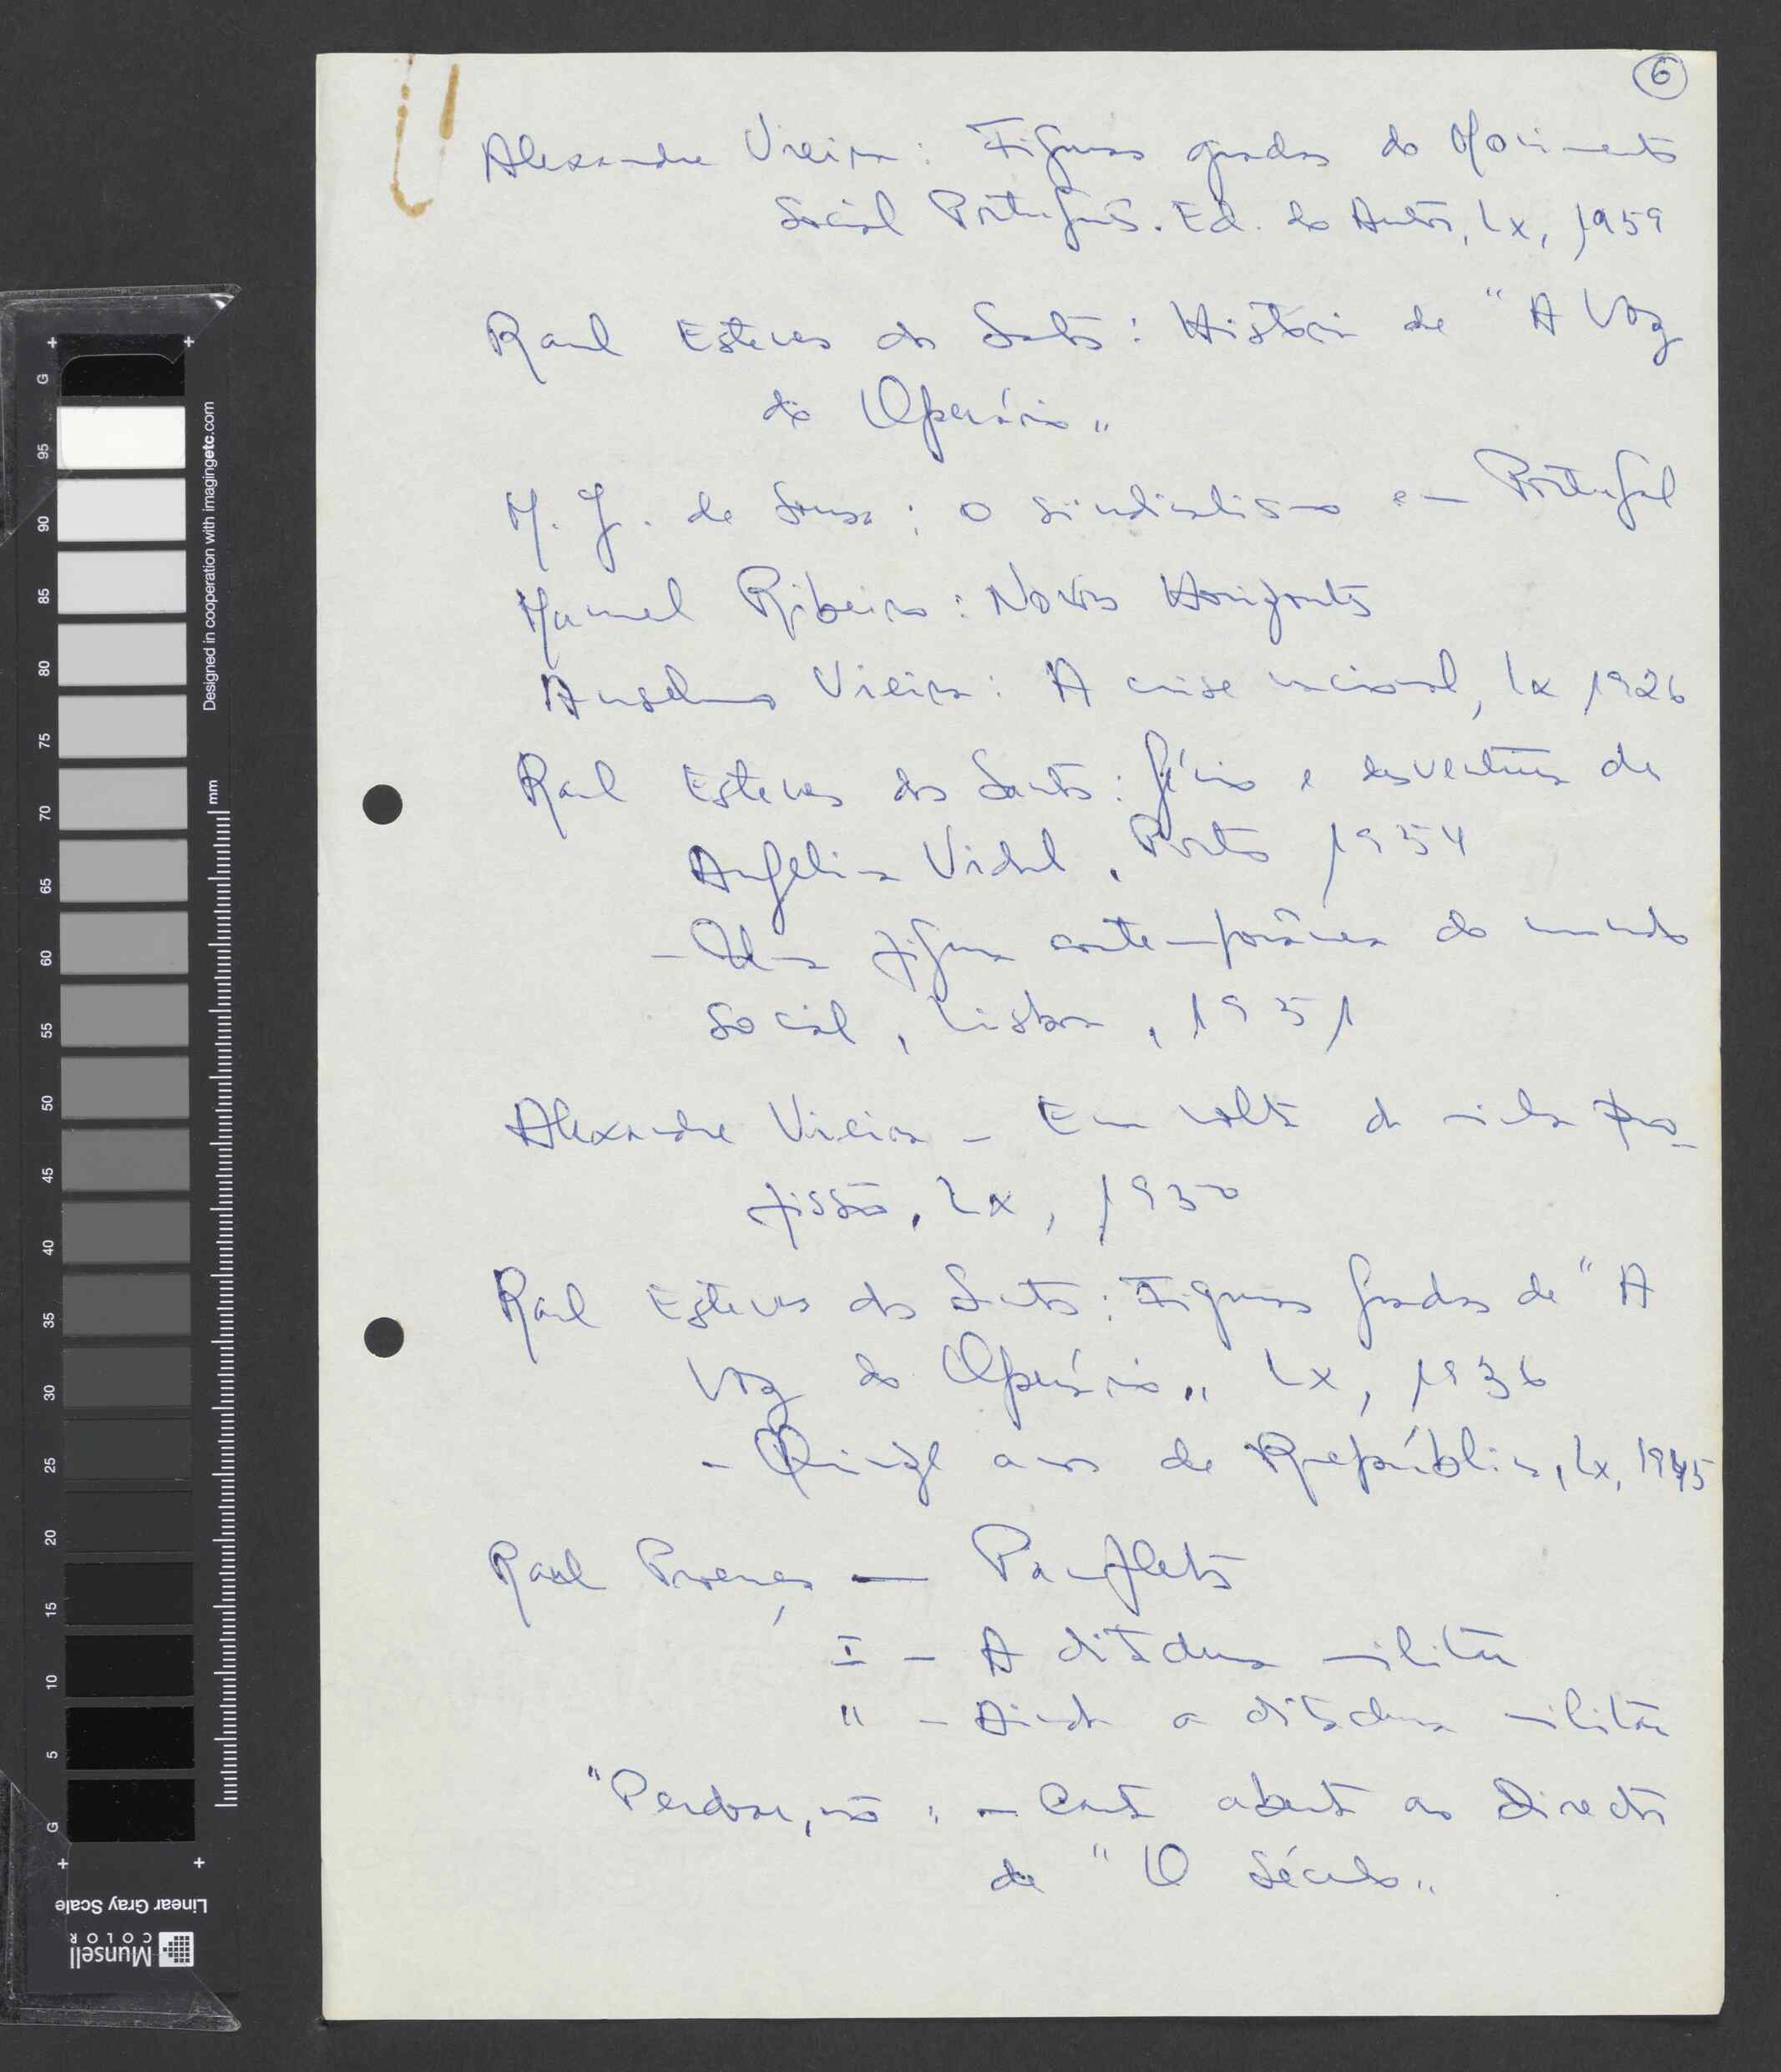 6
Alexandre Vieira: Figuras gradas do Movimento
Social Português. Ed. do Autor, Lx, 1959
Raul Esteves dos Santos: História de "A Voz
do Operário"
M. J. de Sousa: O sindicalismo em Portugal
Manuel Ribeiro: Novos Horizontes
Anselmo Vieira: A crise nacional, Lx 1926
Raul Esteves dos Santos: Génio e desventura de
Angelina Vidal, Porto 1954
- Uma figura contemporânea do mundo
social, Lisboa, 1951
Alexandre Vieira - Em volta da minha pro-
fissão, Lx, 1950
Raul Esteves dos Santos: Figuras Gradas de "A
Voz do Operário" Lx, 1936
- Quinze anos de República, Lx, 1945
Raul Proença — Panfletos
I - A ditadura militar
" - Ainda a ditadura militar
- Carta aberta ao Director
de "O Século"
G
95
90
85
80
75
70
65
60
55
50
45
40
35
30
25
20
15
10
5
G
Designed in cooperation with imagingetc.com
mm
Linear Gray Scale
Munsell
COLOR